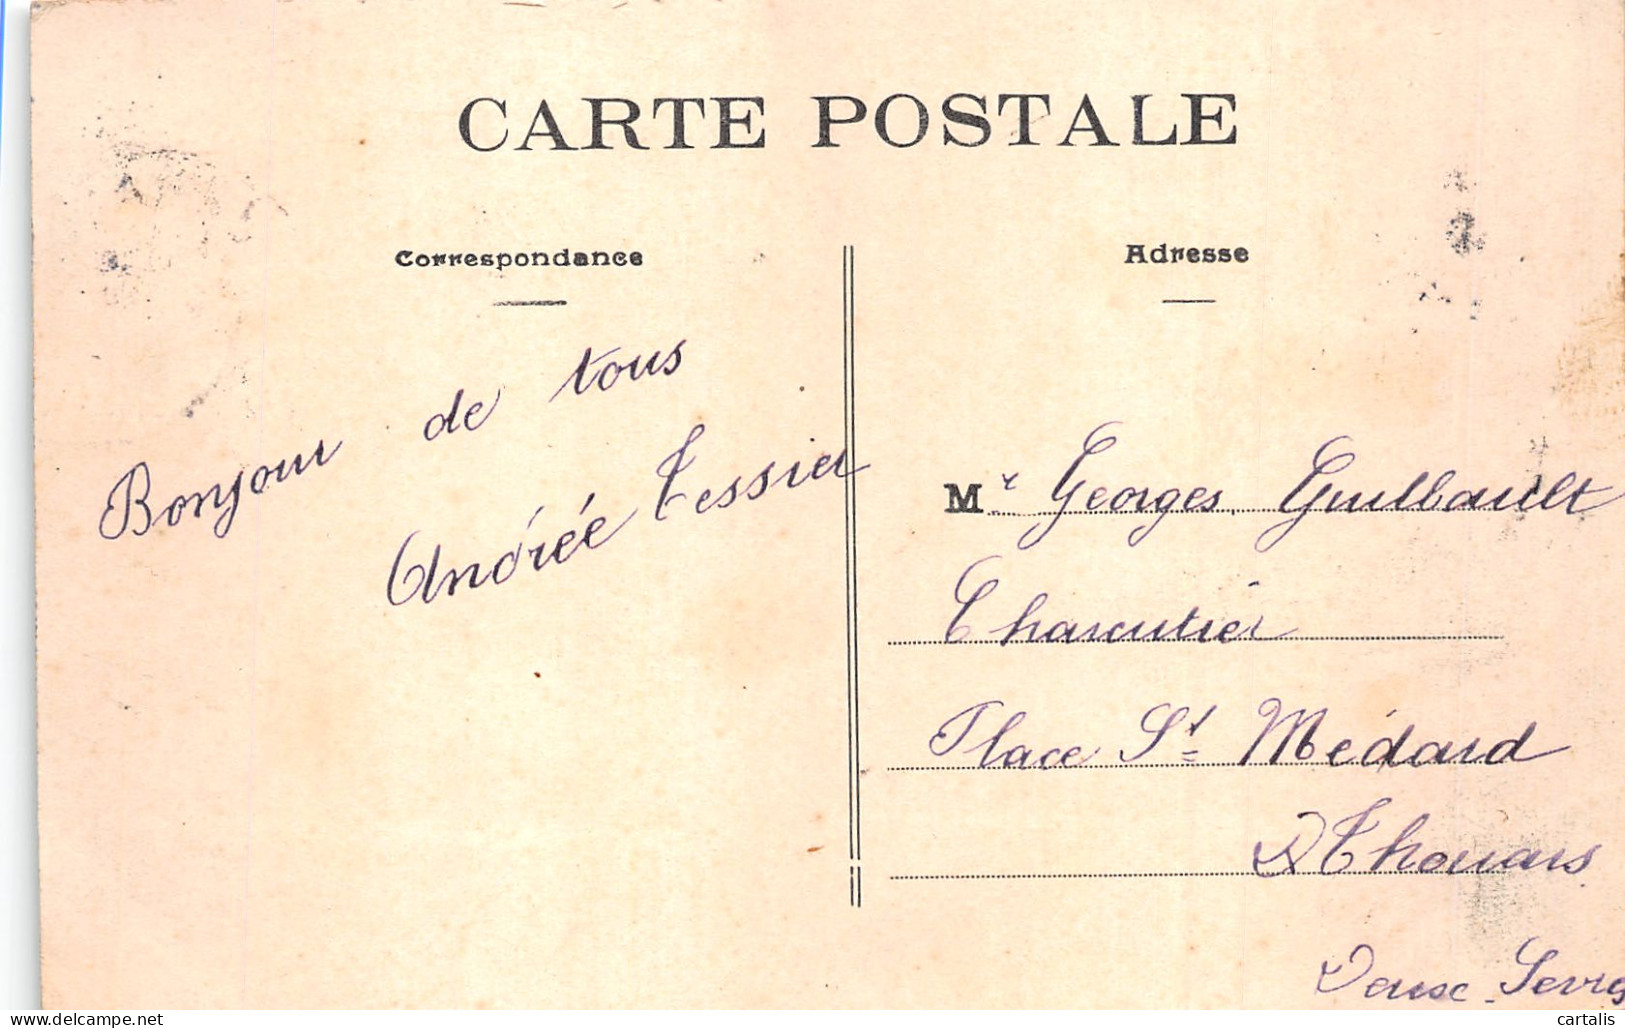 CARTE POSTALE
Correspondance
Bonjour de tous
Andrée Tessier
Adresse
Mr Georges Guilbault
Charcutier
Place St Médard
Thouars
Deux-Sevres
www.delcampe.net
cartalis